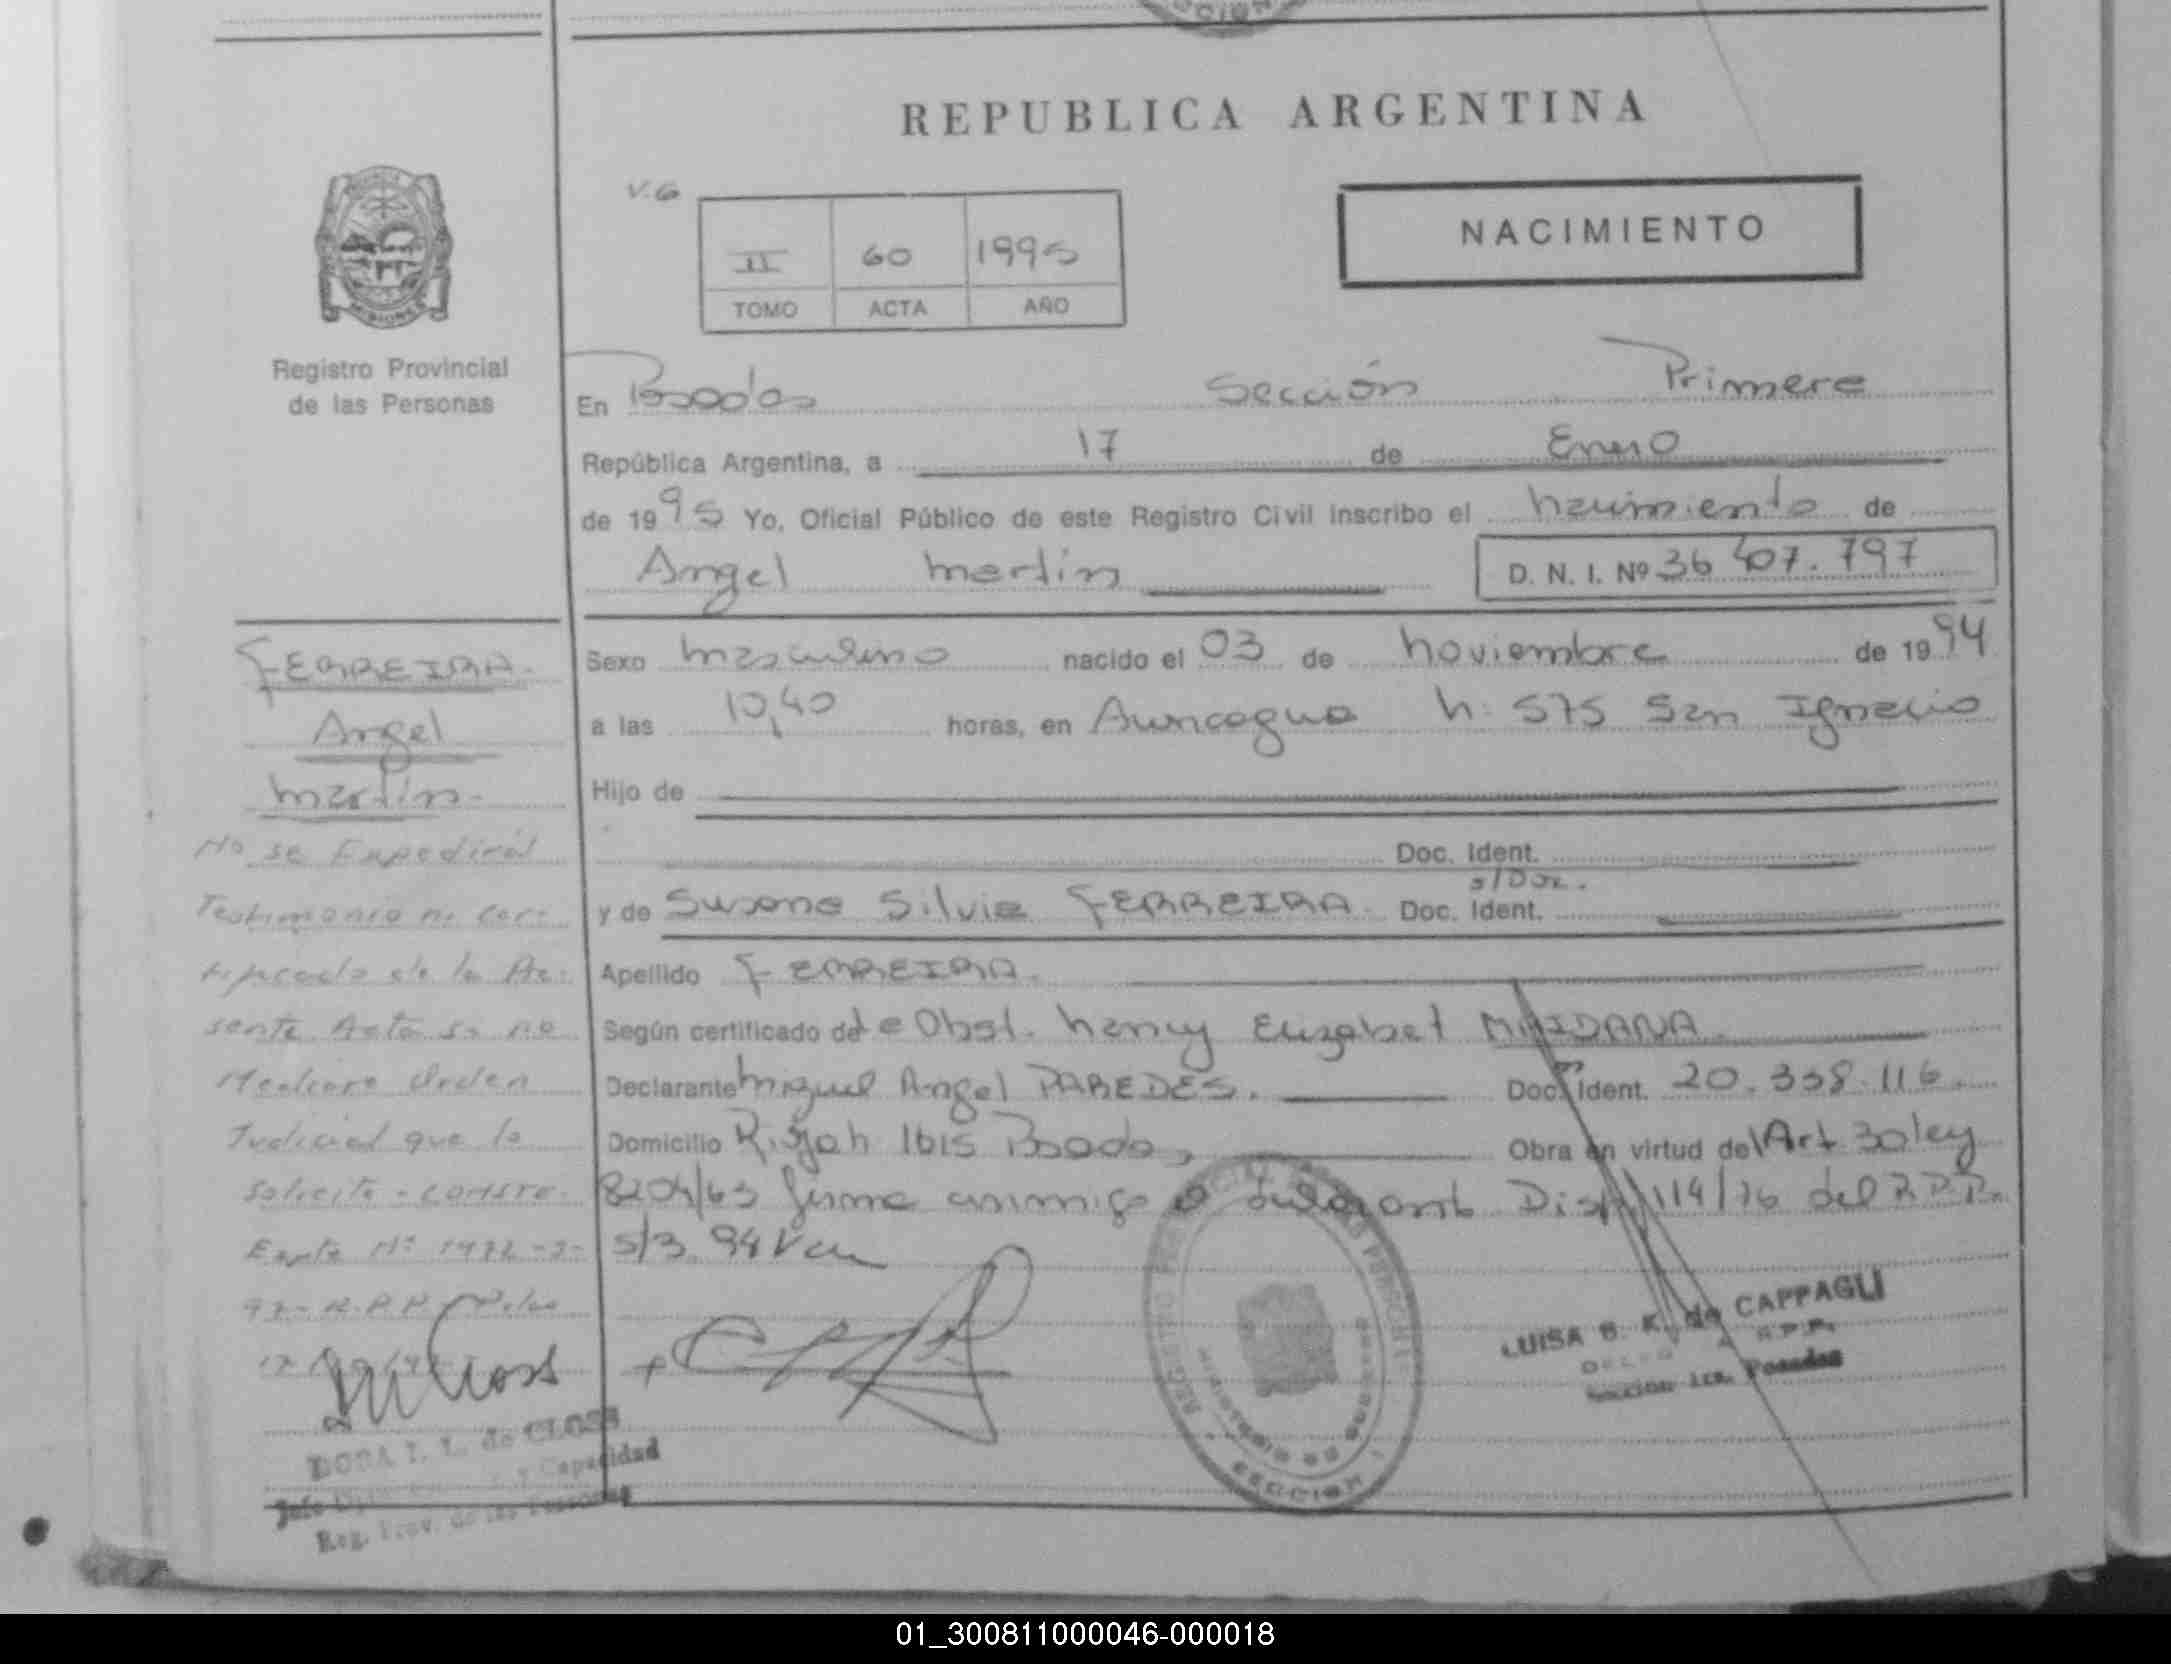 REPUBLICA ARGENTINA
V.G
II 60 1995
TOMO ACTA AÑO
NACIMIENTO
MISIONES
Registro Provincial
de las Personas
En Posadas Sección Primera
República Argentina, a 17 de Enero
de 1995 Yo, Oficial Público de este Registro Civil inscribo el nacimiento de
Angel Martin D. N. I. Nº 36 407.797
FERREIRA
Angel
Martin.
Sexo masculino nacido el 03 de noviembre de 1994
a las 10,40 horas, en Aconcagua N: 575 San Ignacio
Hijo de
Doc. Ident.
s/Doc.
y de Susana Silvia FERREIRA. Doc. Ident.
Apellido FERREIRA.
Según certificado de Obst. Nancy Elizabet
Declarante Miguel Angel PAREDES. Doc. Ident. 20.338.116.
Domicilio 1615 Posadas, Obra en virtud del Art 30 ley
8204/63 firma conmigo el declarante Disp. 114/76 del R.P.P.
s/3 94
No se Expedirá
Testimonio ni cer-
tificado de la Pre-
sente Acta si no
Mediare Orden
Judicial que lo
solicite -
Expte Nº 1972-
R.P.P.
DORA I. L. de CLOSS
y Capacidad
Reg. Prov. de las Personas
REGISTRO PROVINCIAL DE LAS PERSONAS
MINISTERIO DE GOBIERNO
SECCION 1
LUISA B. K. de CAPPAGLI
R.P.P.
Sección 1ra. Posadas
01_300811000046-000018